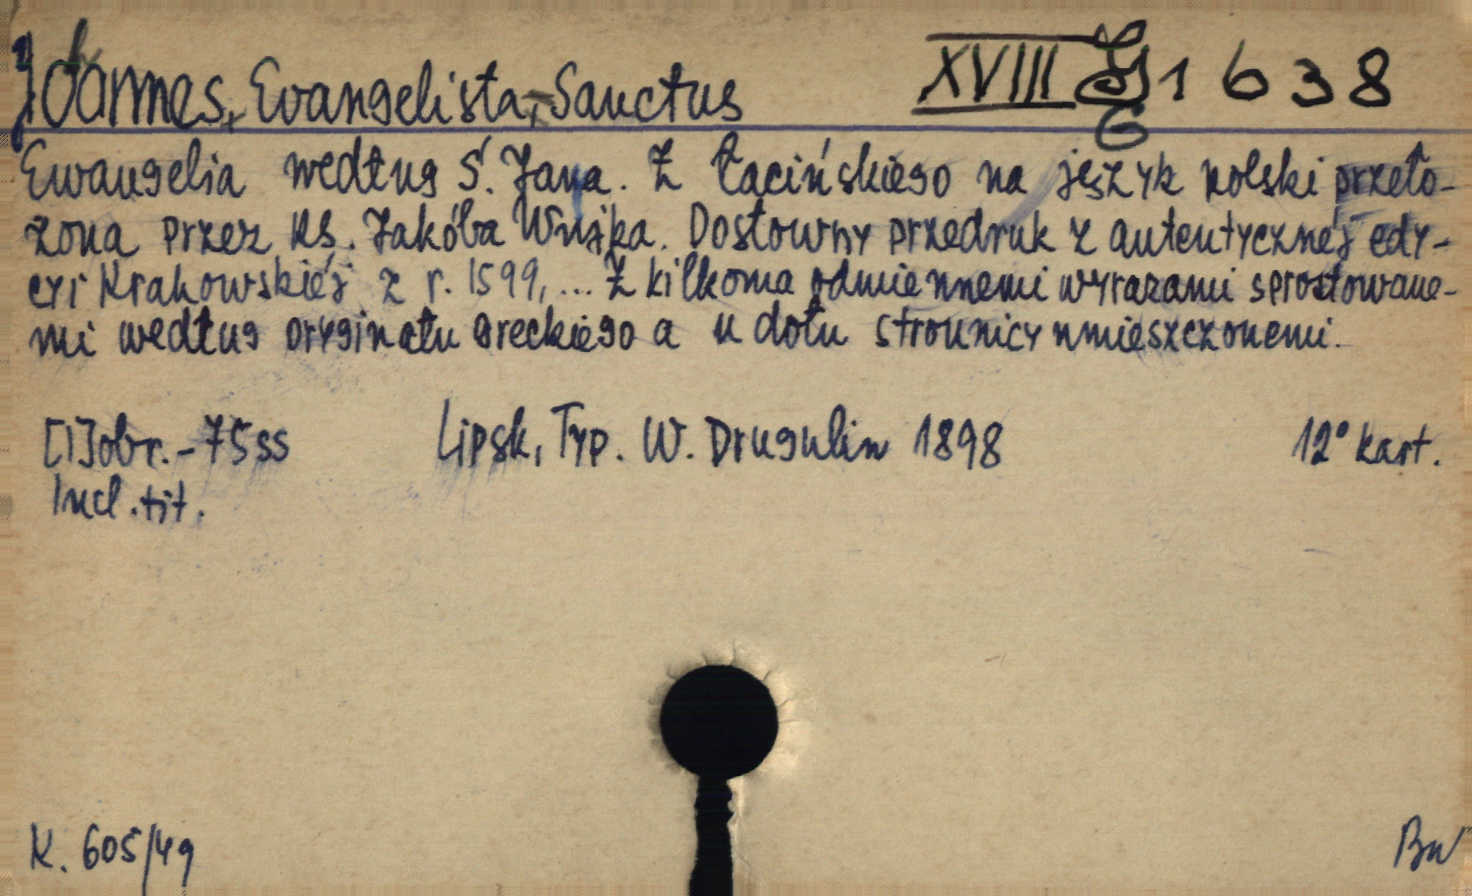 Joannes, Evangelista, Sanctus XVIII 1638
G
Ewangelia według Ś. Jana. Z Łacińskiego na język polski przeło-
żona przez Ks. Jakóba Wujka. Dosłowny przedruk z autentycznéj edy-
cyi Krakowskiéj z r. 1599, ... Z kilkoma odmiennemi wyrazami sprostowane-
mi według oryginału greckiégo a u dołu stronnicy umieszczonemi.
[1]obr. - 75 ss Lipsk, Typ. W. Drugulin 1898 12° kart.
Incl. tit.
K. 605/49 Bw